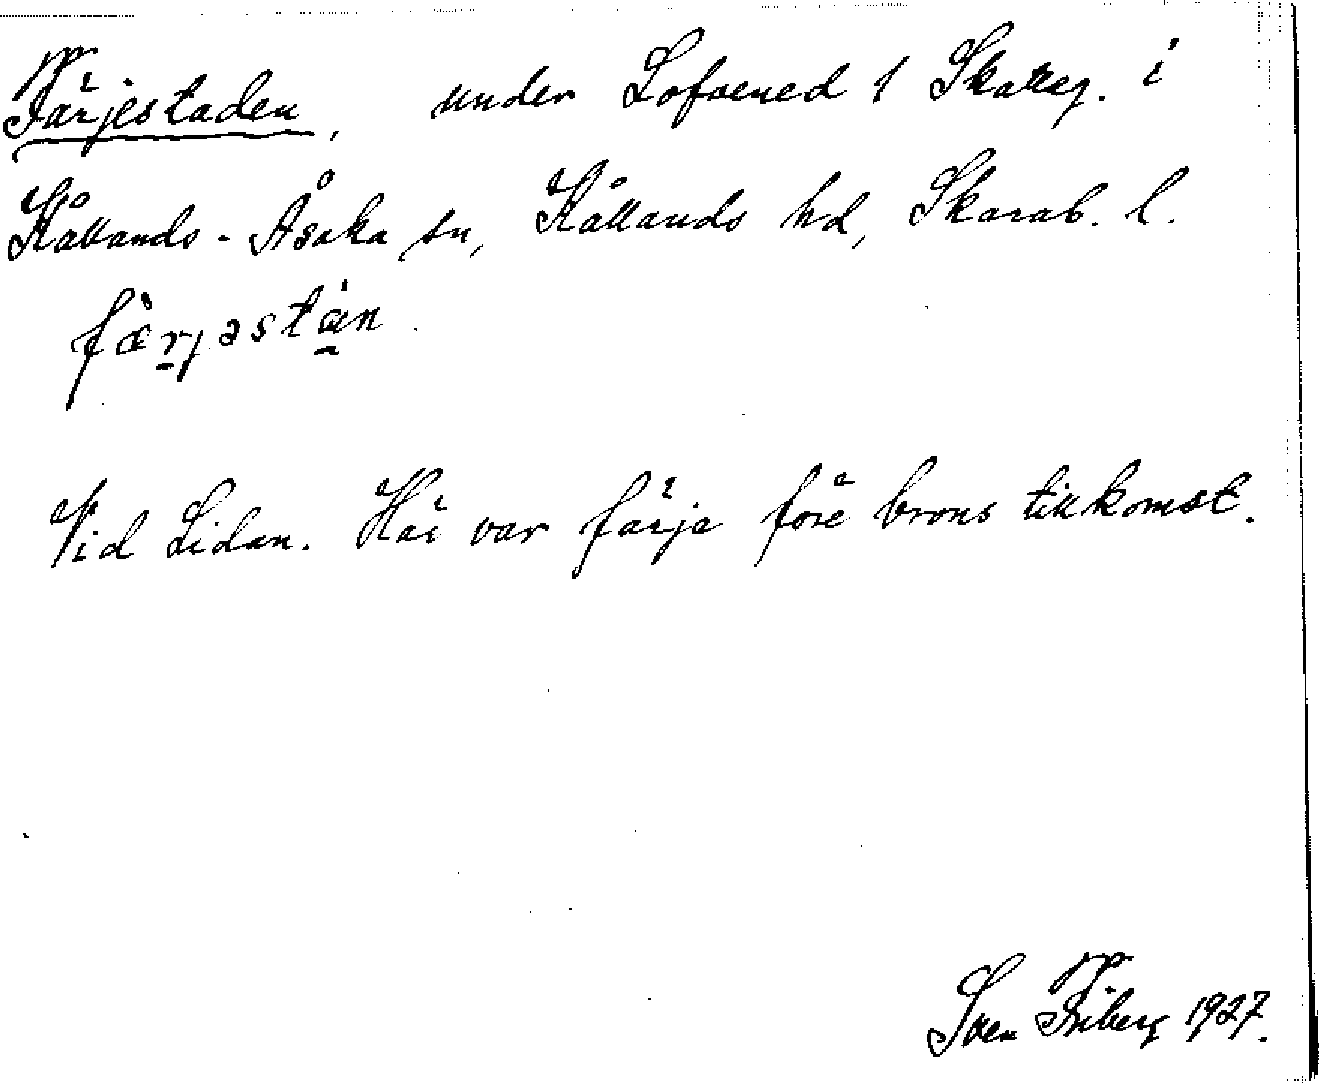 Färjestaden, under Lofvened 1 Skatteg. i
Kållands-Åsaka sn, Kållands hd, Skarab. l.
fær̲jəstὰ̲n.
Vid Lidan. Här var färja före brons tillkomst.
Sven Friberg 1927.